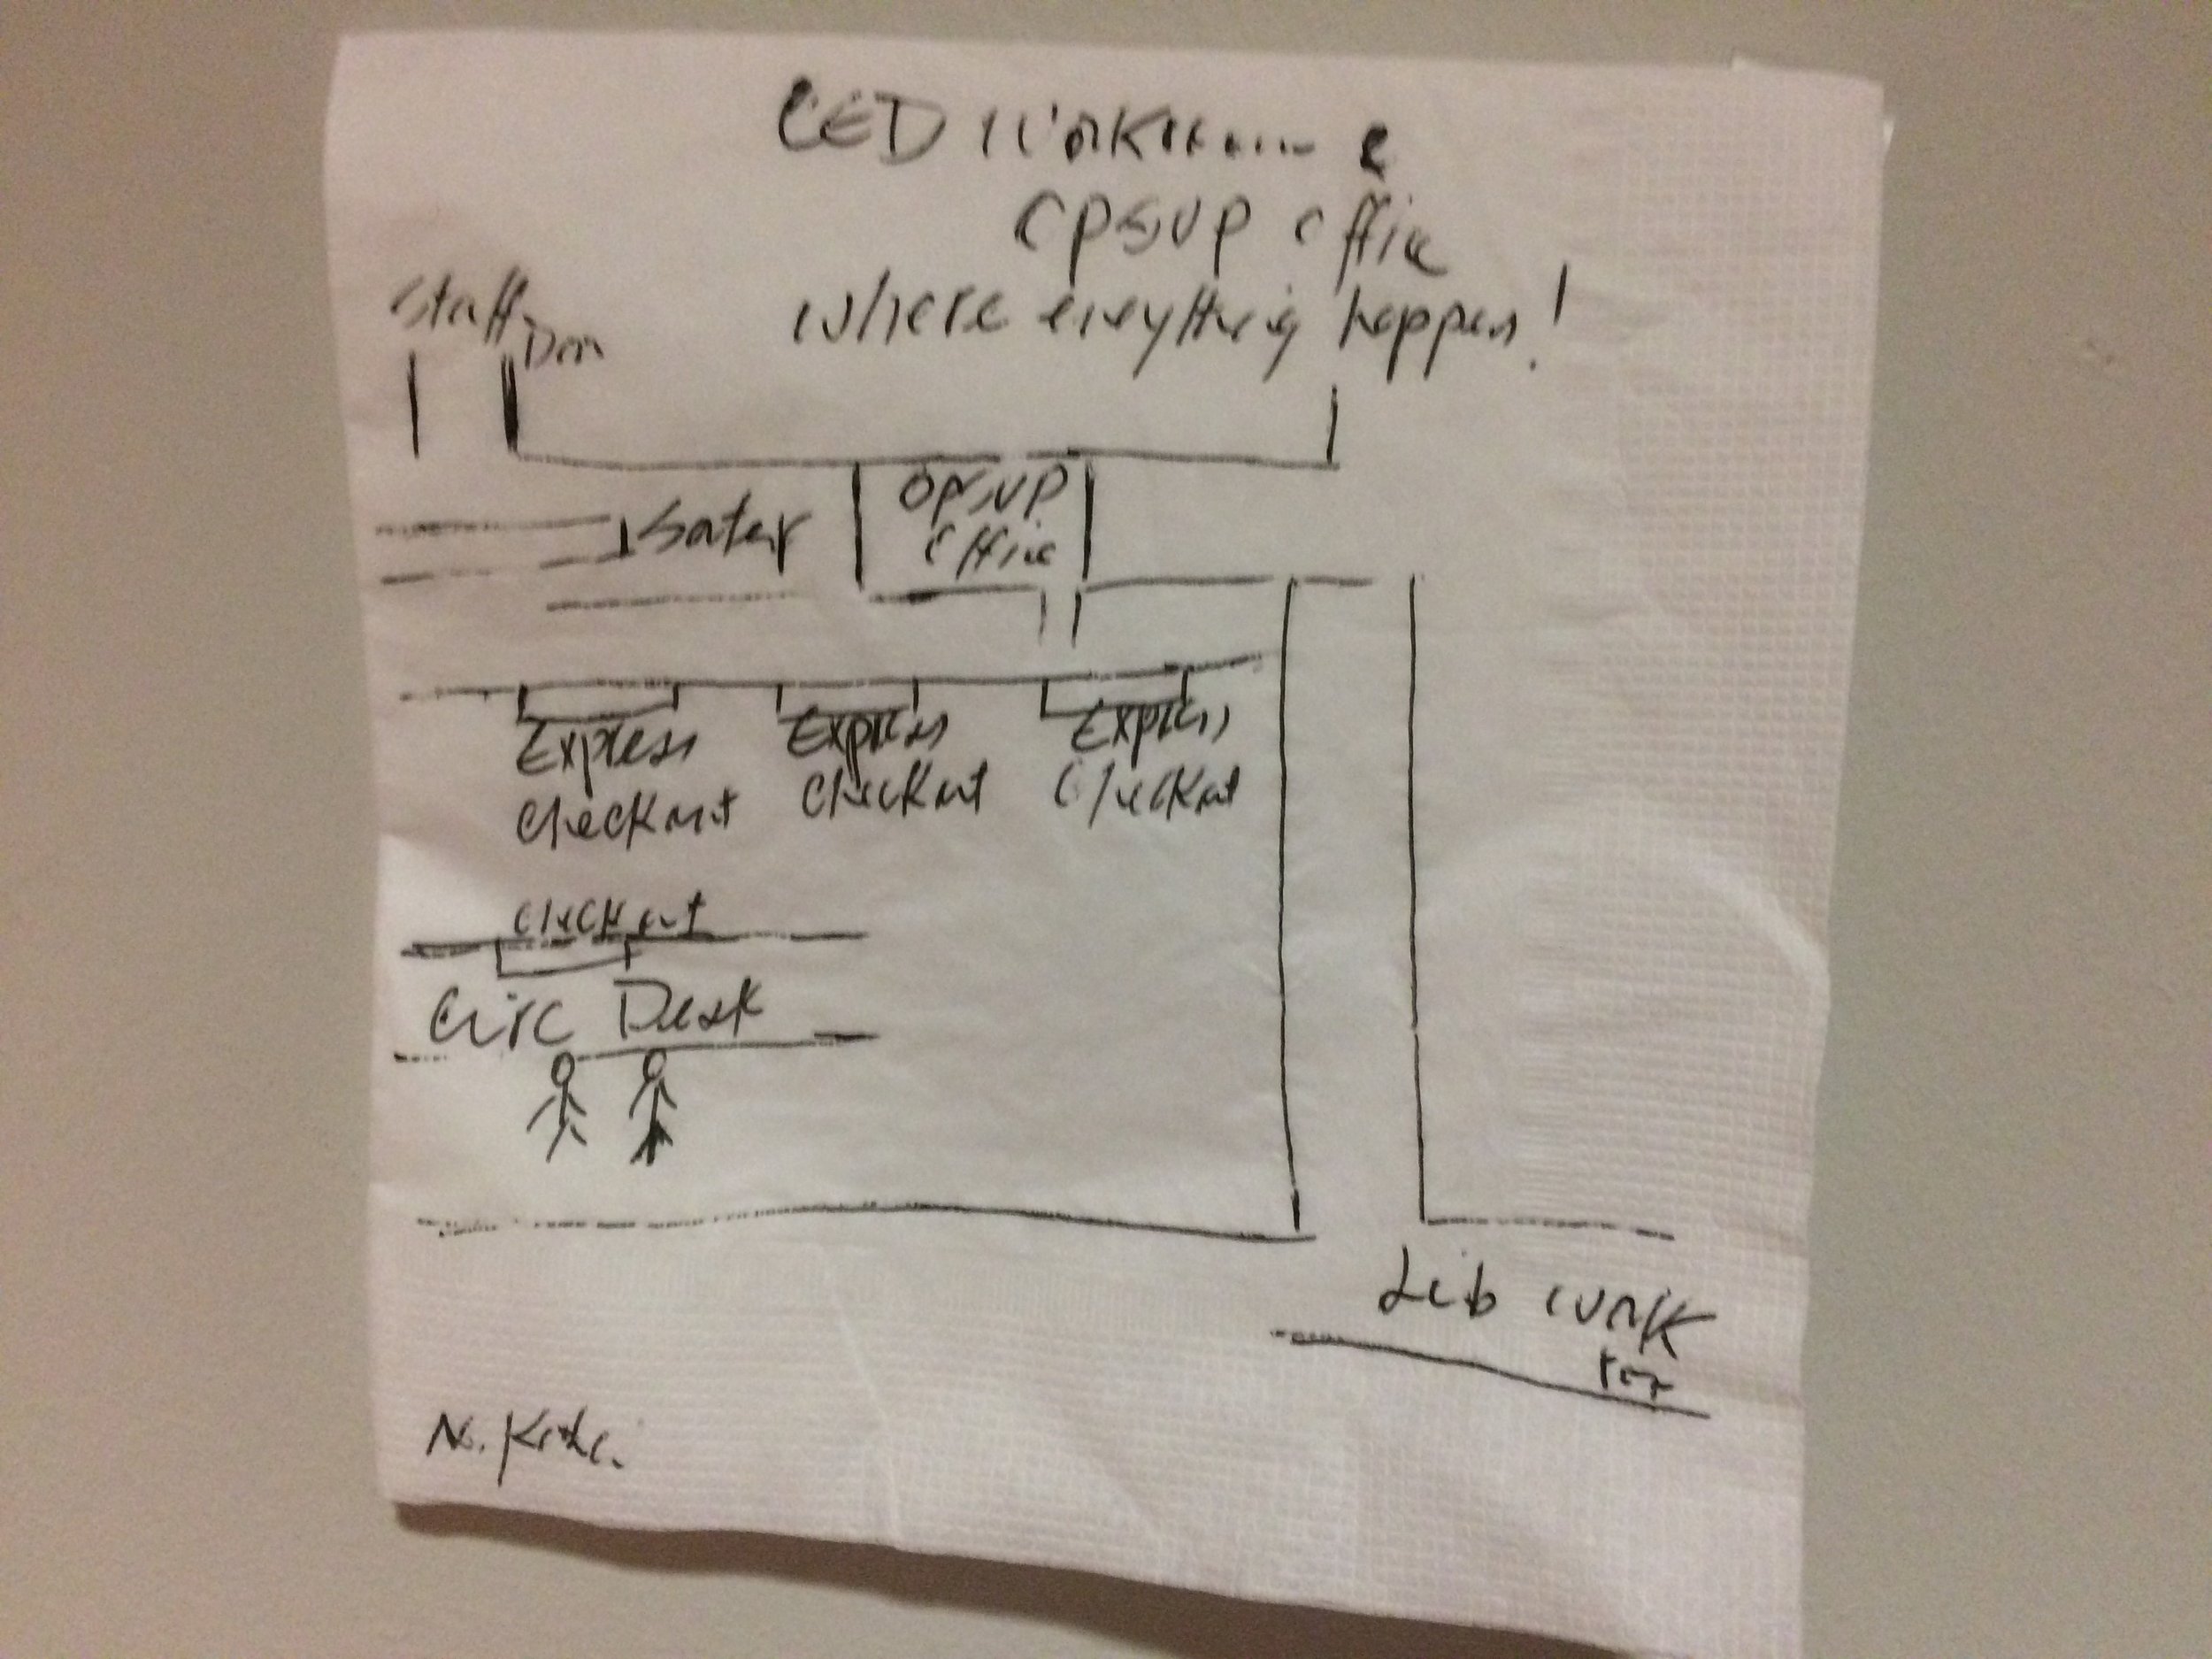 CED workroom &
OPSUP office
where everything happens!
Staff
Door
Sorter
OPSUP
office
Express
Checkout
Express
Checkout
Express
Checkout
Checkout
Circ Desk
Lib work